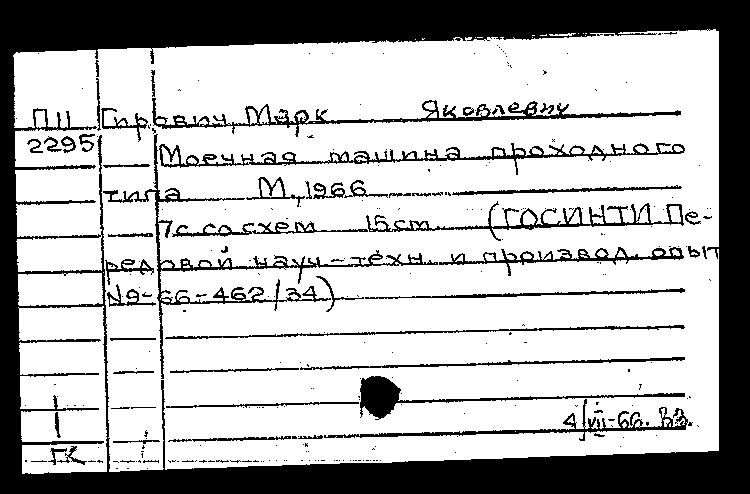 П11 Гирвич, Марк Яковлевич
2295 Моечная машина проходного
типа М., 1966
7с со схем 15см. (ГОСИНТИ Пе-
редовой науч-техн. и производ. опыт
№9-66-462/34)
4/VII-66. ВЗ.
ГК